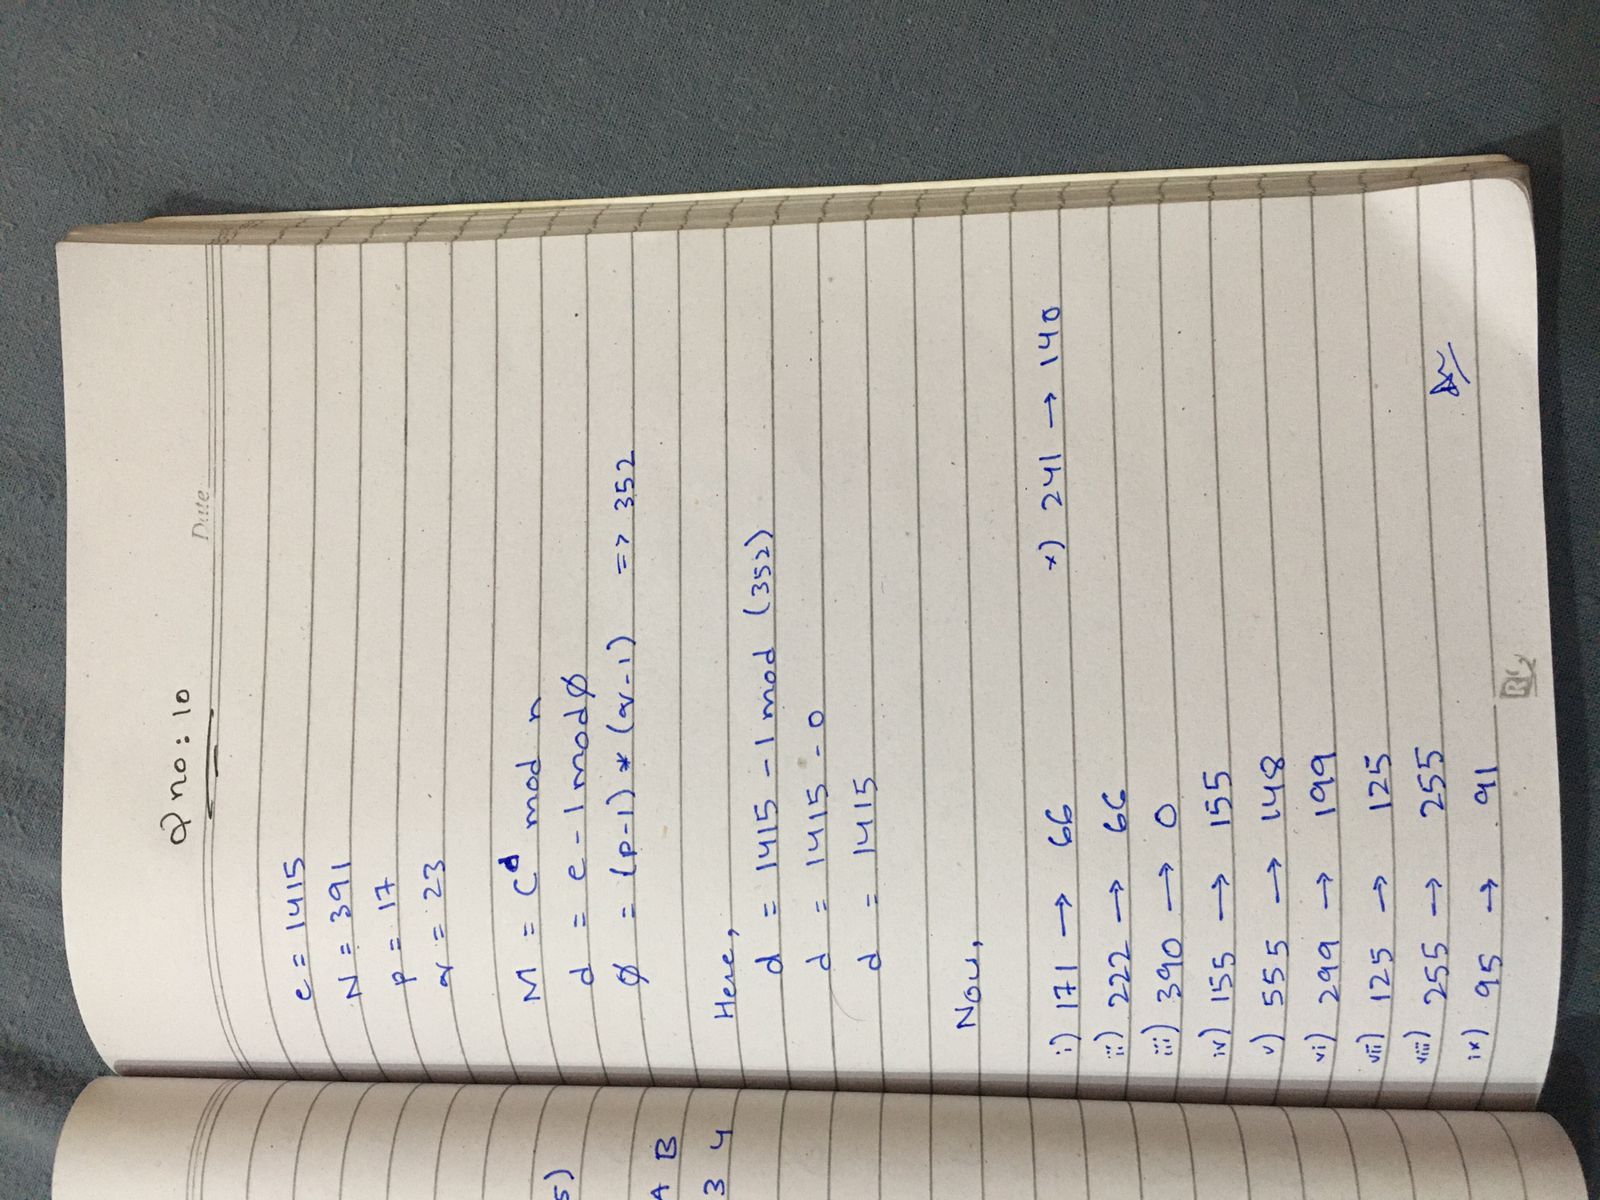 Q no: 10
Date
e = 1415
N = 391
p = 17
q = 23
M = C^d mod n
d = e - 1 mod ϕ
ϕ = (p-1) * (q-1) => 352
Here,
d = 1415 - 1 mod (352)
d = 1415 - 0
d = 1415
Now,
i) 171 → 66
x) 241 → 140
ii) 222 → 66
iii) 390 → 0
iv) 155 → 155
v) 555 → 148
vi) 299 → 199
vii) 125 → 125
viii) 255 → 255
ix) 95 → 91
5)
A B
3 4